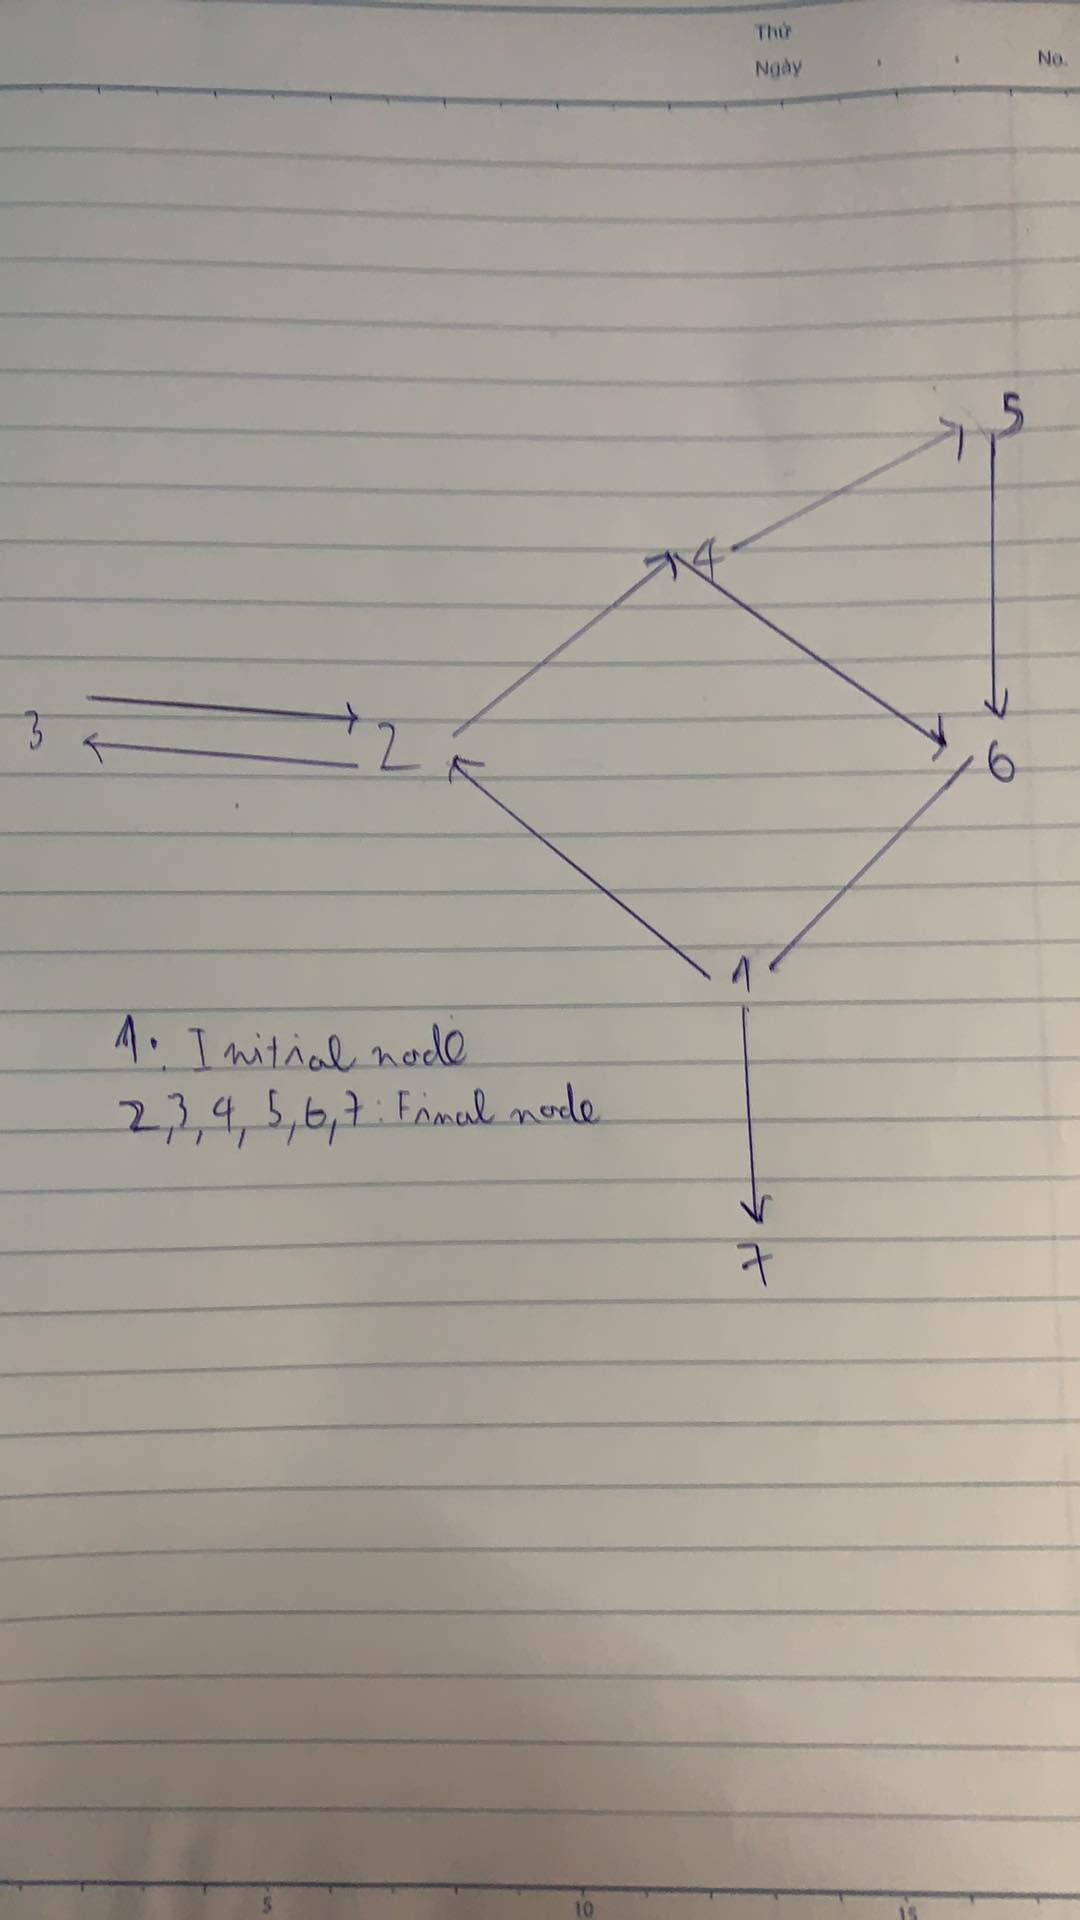 Thứ
Ngày
No.
5
4
3
2
6
1
1: Initial node
2,3,4,5,6,7: Final node
7
5
10
15